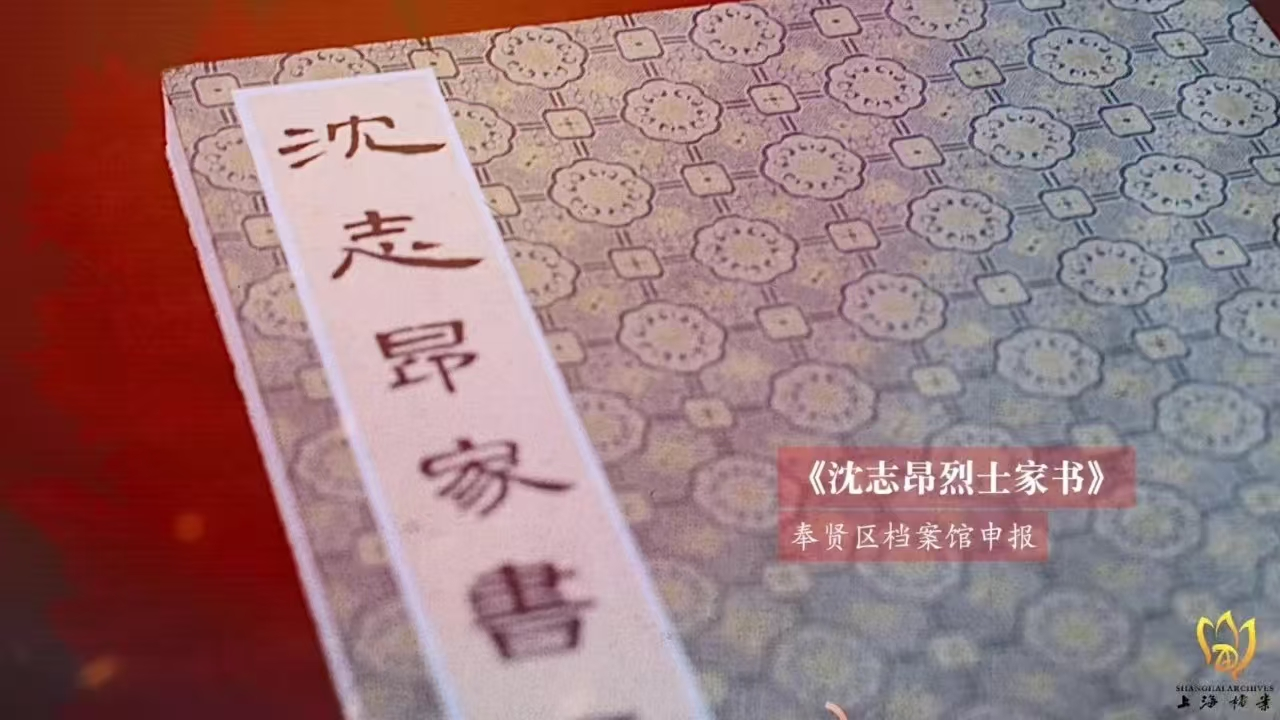 沈志昂家書
《沈志昂烈士家书》
奉贤区档案馆申报
SHANGHAI ARCHIVES
上海档案